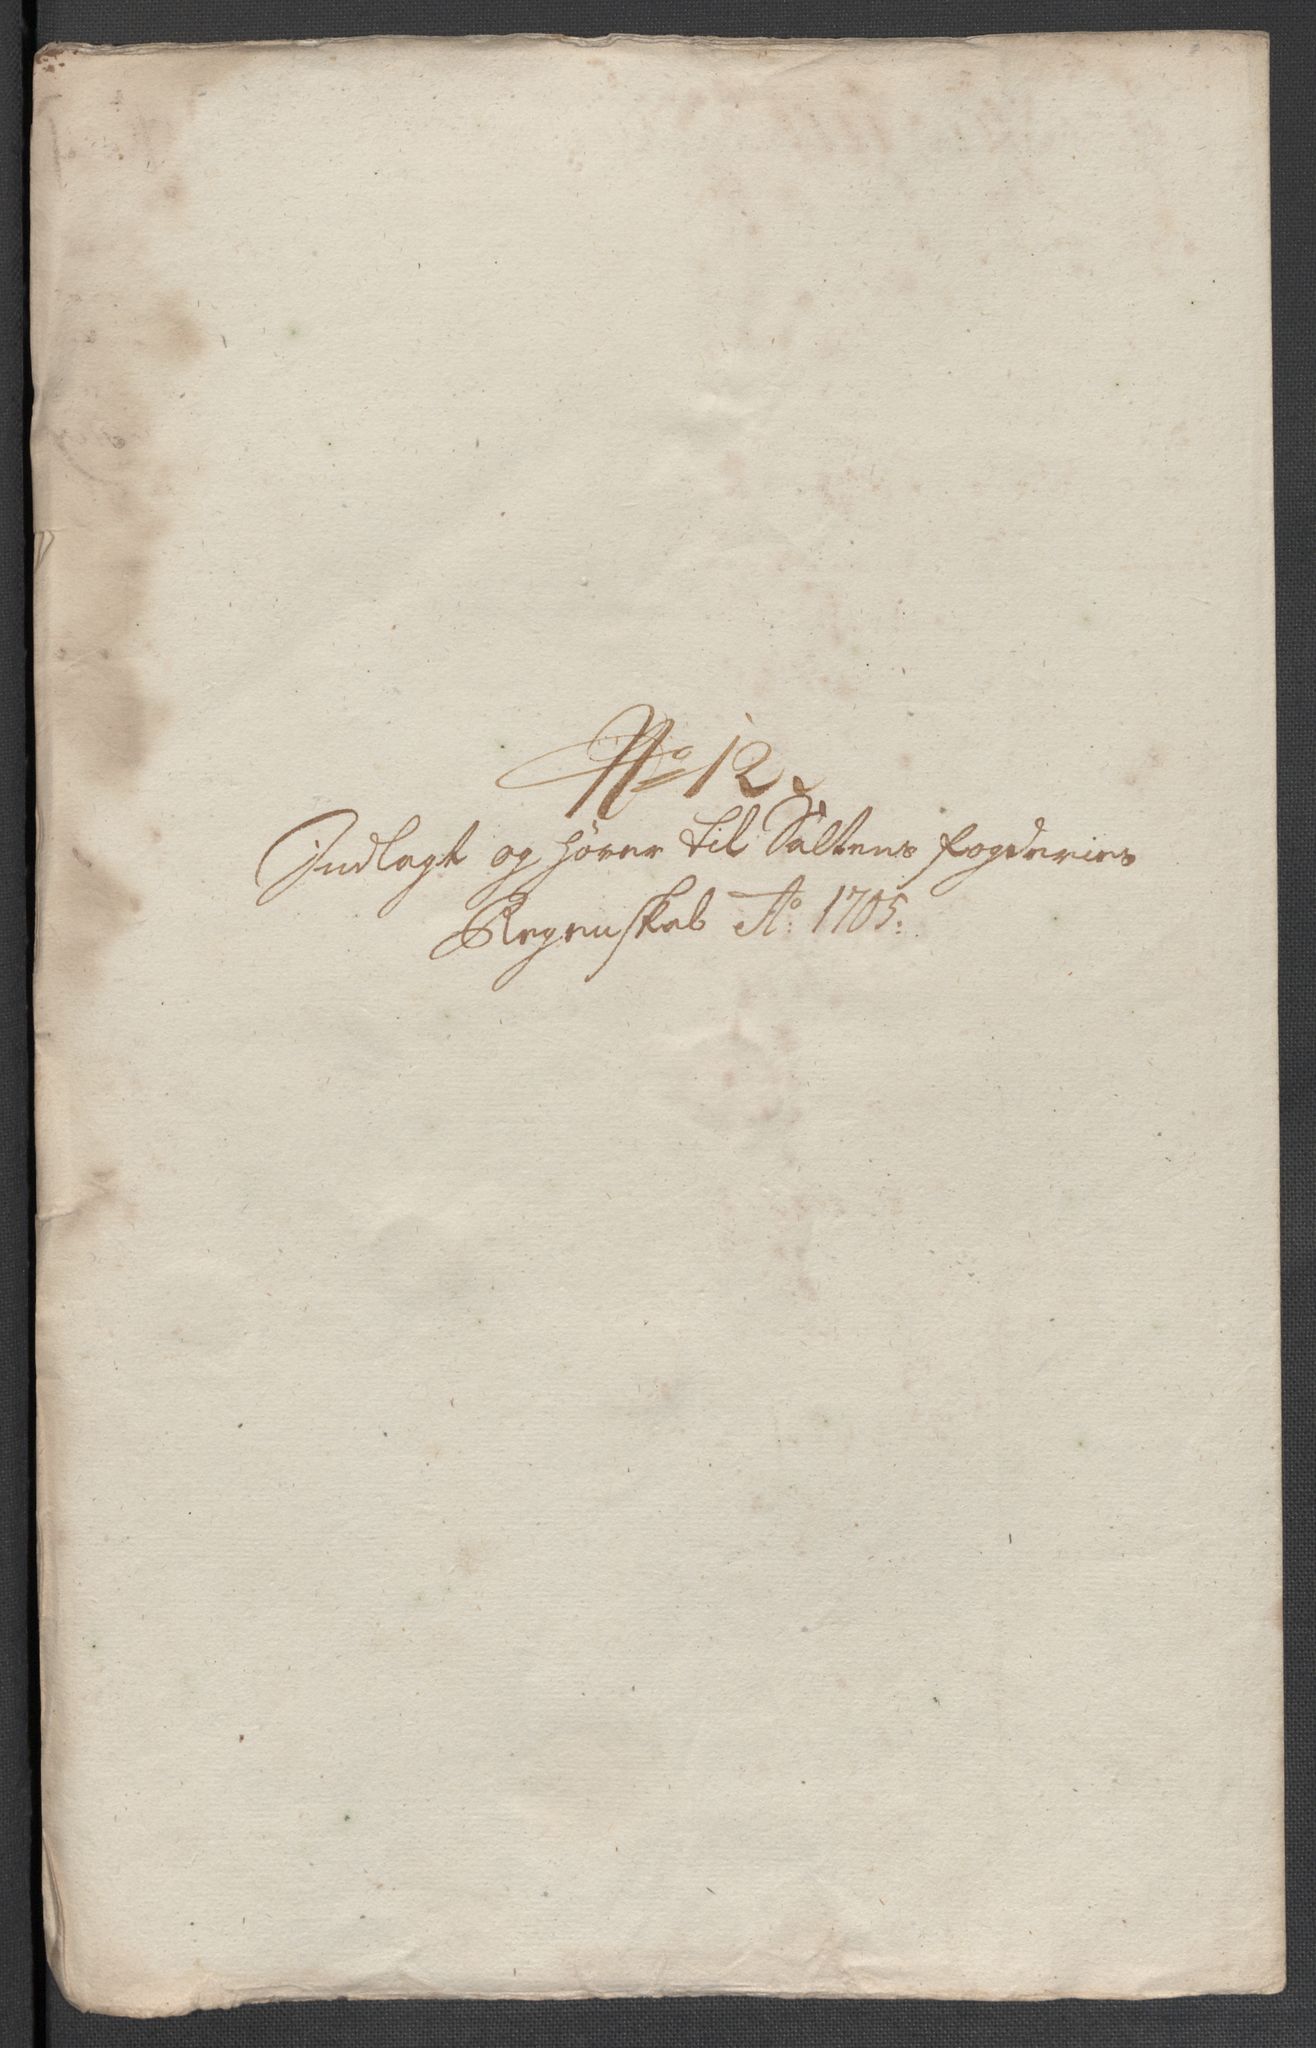 No 12.
Indlagt og hører til Saltens fogderies
Regenskab Ao: 1705.